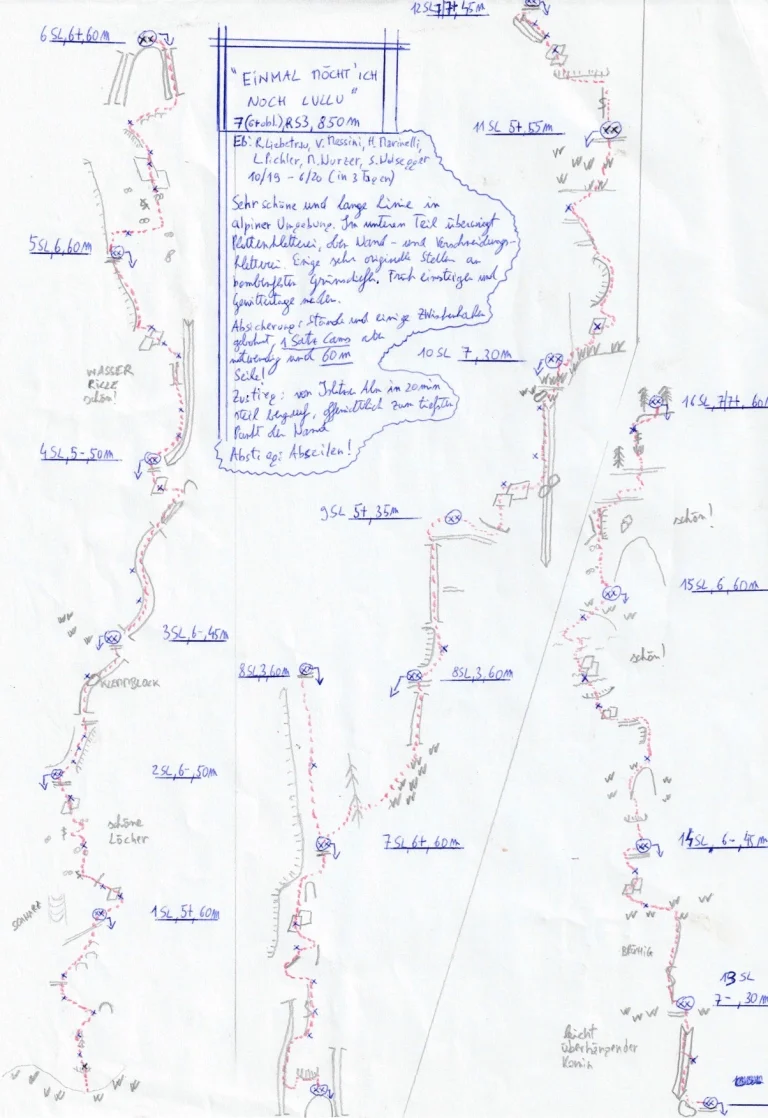 "EINMAL MÖCHT' ICH
NOCH LULLU"
7 (6+obl.), RS3, 850m
Eb: R. Liebetrau, V. Messini, H. Marinelli,
L. Pichler, M. Wurzer, S.
10/19 - 6/20 (in 3 Tagen)
Sehr schöne und lange Linie in
alpiner Umgebung. Im unteren Teil überwiegt
Plattenkletterei, oben Wand- und Verschneidungs-
kletterei. Einige sehr originelle Stellen an
bombenfesten Früh einsteigen und
Gewittertage meiden.
Absicherung: Stände und einige Zwischenhaken
gebohrt, 1 Satz Cams aber
notwendig und 60m
Seile!
Zustieg: von Alm in 20min
steil bergauf, offensichtlich zum tiefsten
Punkt der Wand
Abstieg: Abseilen!
6 SL, 6+, 60m
5 SL, 6, 60m
WASSER
RILLE
schön!
4 SL, 5-, 50m
3 SL, 6-, 45m
KLEMMBLOCK
2 SL, 6-, 50m
schöne
Löcher
1 SL, 5+, 60m
8 SL, 3, 60m
7 SL, 6+, 60m
8 SL, 3, 60m
9 SL 5+, 35m
10 SL 7, 30m
11 SL 5+, 55m
12 SL 7/7+, 45m
16 SL, 7/7+, 60m
schön!
15 SL, 6, 60m
schön!
14 SL, 6-, 45m
BRÜCHIG
13 SL
7-, 30m
leicht
überhängender
Kamin